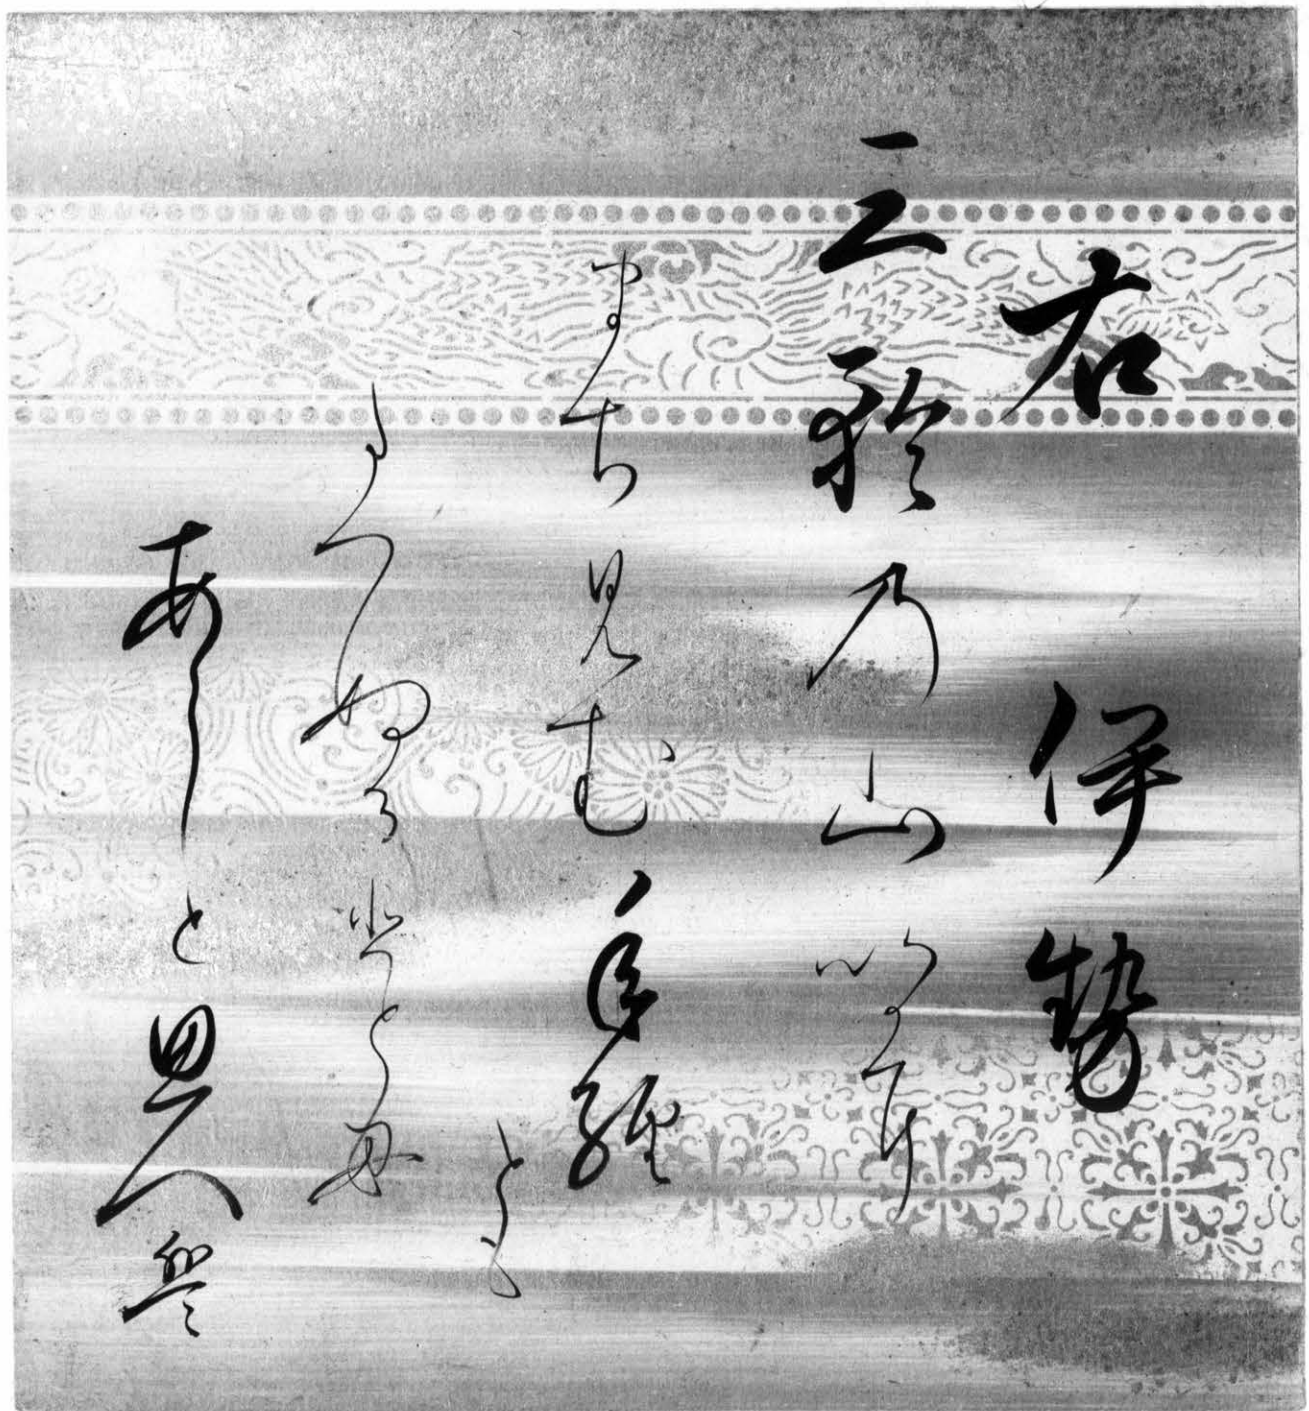 右 伊勢
三輪乃山いかに
まち見む年経
とも
たつぬる悲とも
あらしと思へ盤